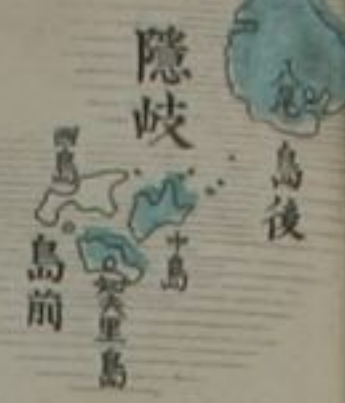 隱岐
八尾
島後
西島
中島
島前
知夫里島